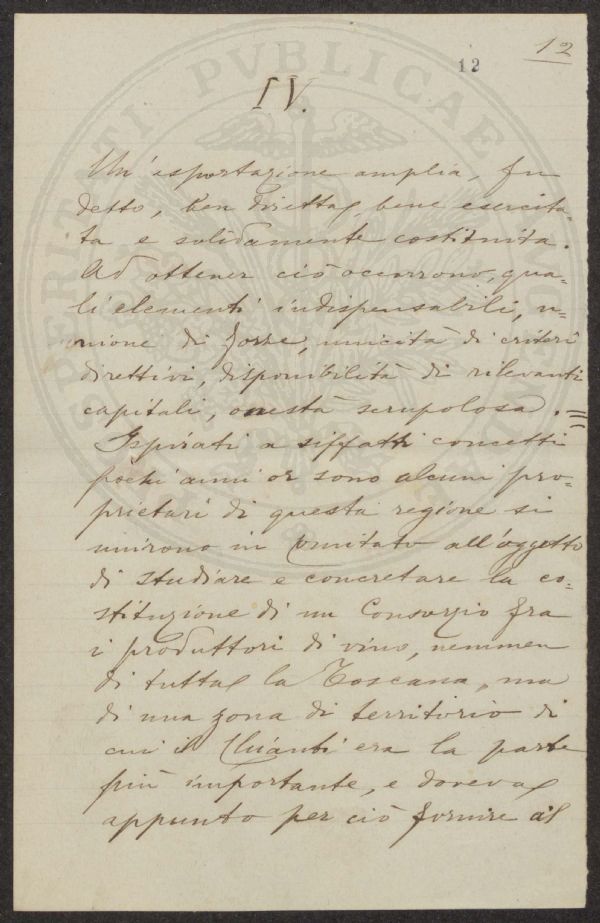 12
12
IV.
Un'esportazione amplia, fu
detto, ben diretta, bene esercita-
ta e solidamente costituita.
Ad ottener ciò ocorrono, qua-
li elementi indispensabili, u-
nione di forze, unicità di criteri
direttivi, disponibilità di rilevanti
capitali, onestà scrupolosa. =
Ispirati a siffatti concetti
pochi anni or sono alcuni pro-
prietari di questa regione si
unirono in Comitato all'oggetto
di studiare e concretare la co-
stituzione di un Consorzio fra
i produttori di vino, nemmen
di tutta la Toscana, ma
di una zona di territorio di
cui il Chianti era la parte
più importante, e doveva
appunto per ciò fornire il
PVBLICAE